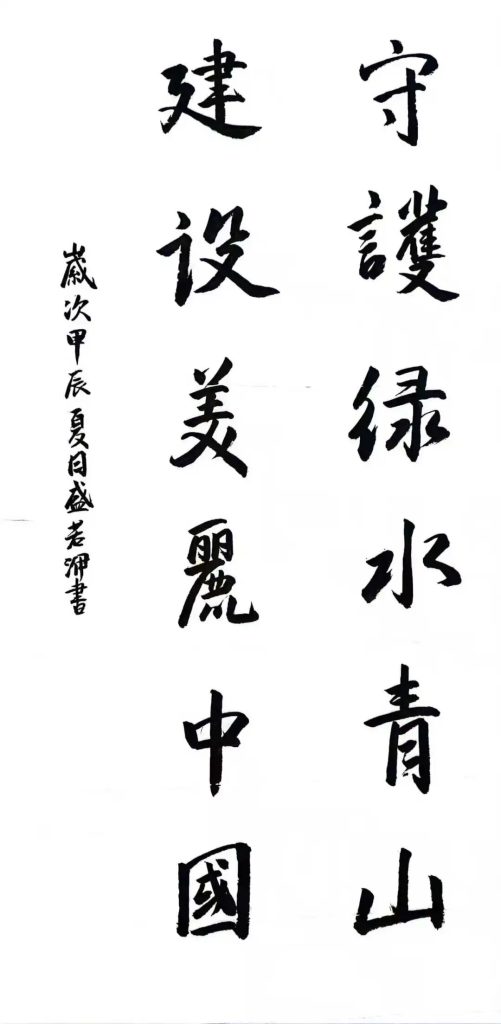 守護绿水青山
建设美麗中國
歲次甲辰夏月盛若㳌書